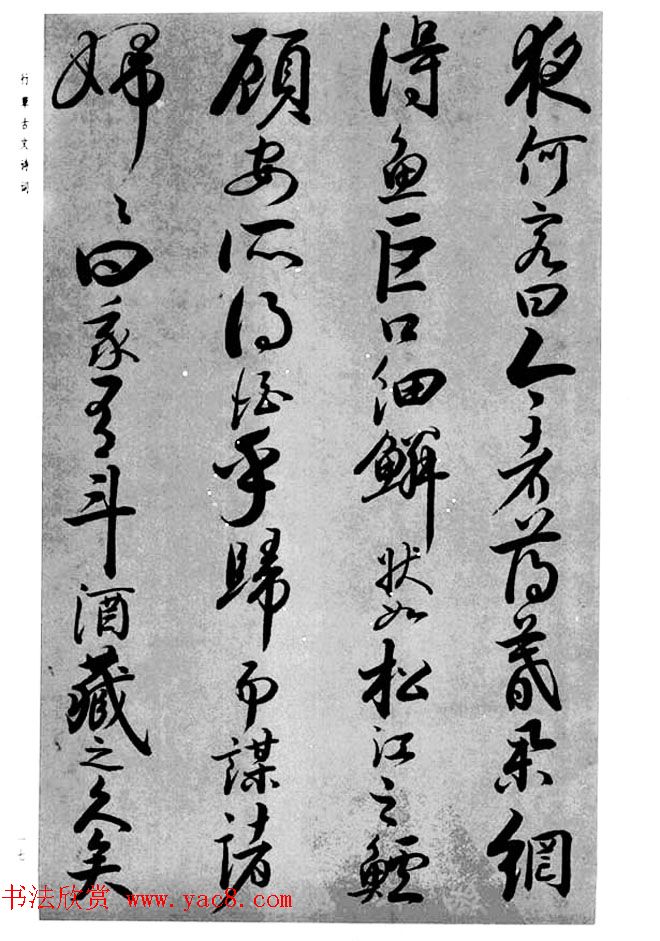 夜何客曰今者薄暮舉網
得魚巨口細鱗狀如松江之鱸
顧安所得酒乎歸而謀諸
婦々曰我有斗酒藏之久矣
行草古文诗词
一七
书法欣赏 www.yac8.com